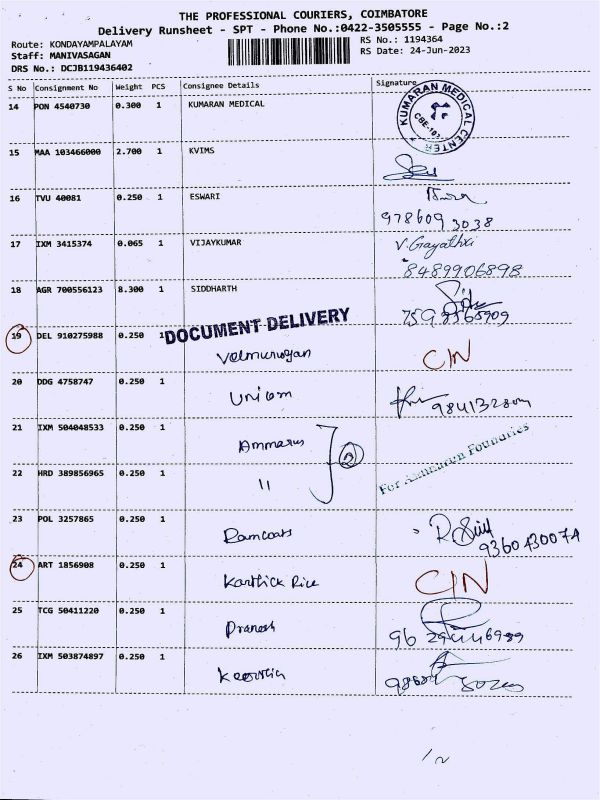 THE PROFESSIONAL COURIERS, COIMBATORE
Delivery Runsheet - SPT - Phone No.:0422-3505555 - Page No.:2
Route: KONDAYAMPALAYAM
Staff: MANIVASAGAN
DRS No.: DCJB119436402
RS No.: 1194364
RS Date: 24-Jun-2023
S No Consignment No Weight PCS Consignee Details Signature
14 PON 4540730 0.300 1 KUMARAN MEDICAL
KUMARAN MEDICAL CENTER
15 MAA 103466000 2.700 1 KVIMS
16 TVU 40081 0.250 1 ESWARI
978609 3038
17 IXM 3415374 0.065 1 VIJAYKUMAR V. Gayathri
8489906898
18 AGR 700556123 8.300 1 SIDDHARTH
DOCUMENT DELIVERY
19 DEL 910275988 0.250 1 Velmurugan CIN
20 DDG 4758747 0.250 1 Unicom
21 IXM 504048533 0.250 1 Ammarun 2
22 HRD 389856965 0.250 1 11 For Ammarun Foundries
23 POL 3257865 0.250 1 Ramcoats
24 ART 1856908 0.250 1 Karthick Rice CIN
25 TCG 50411220 0.250 1 Pranesh
26 IXM 503874897 0.250 1